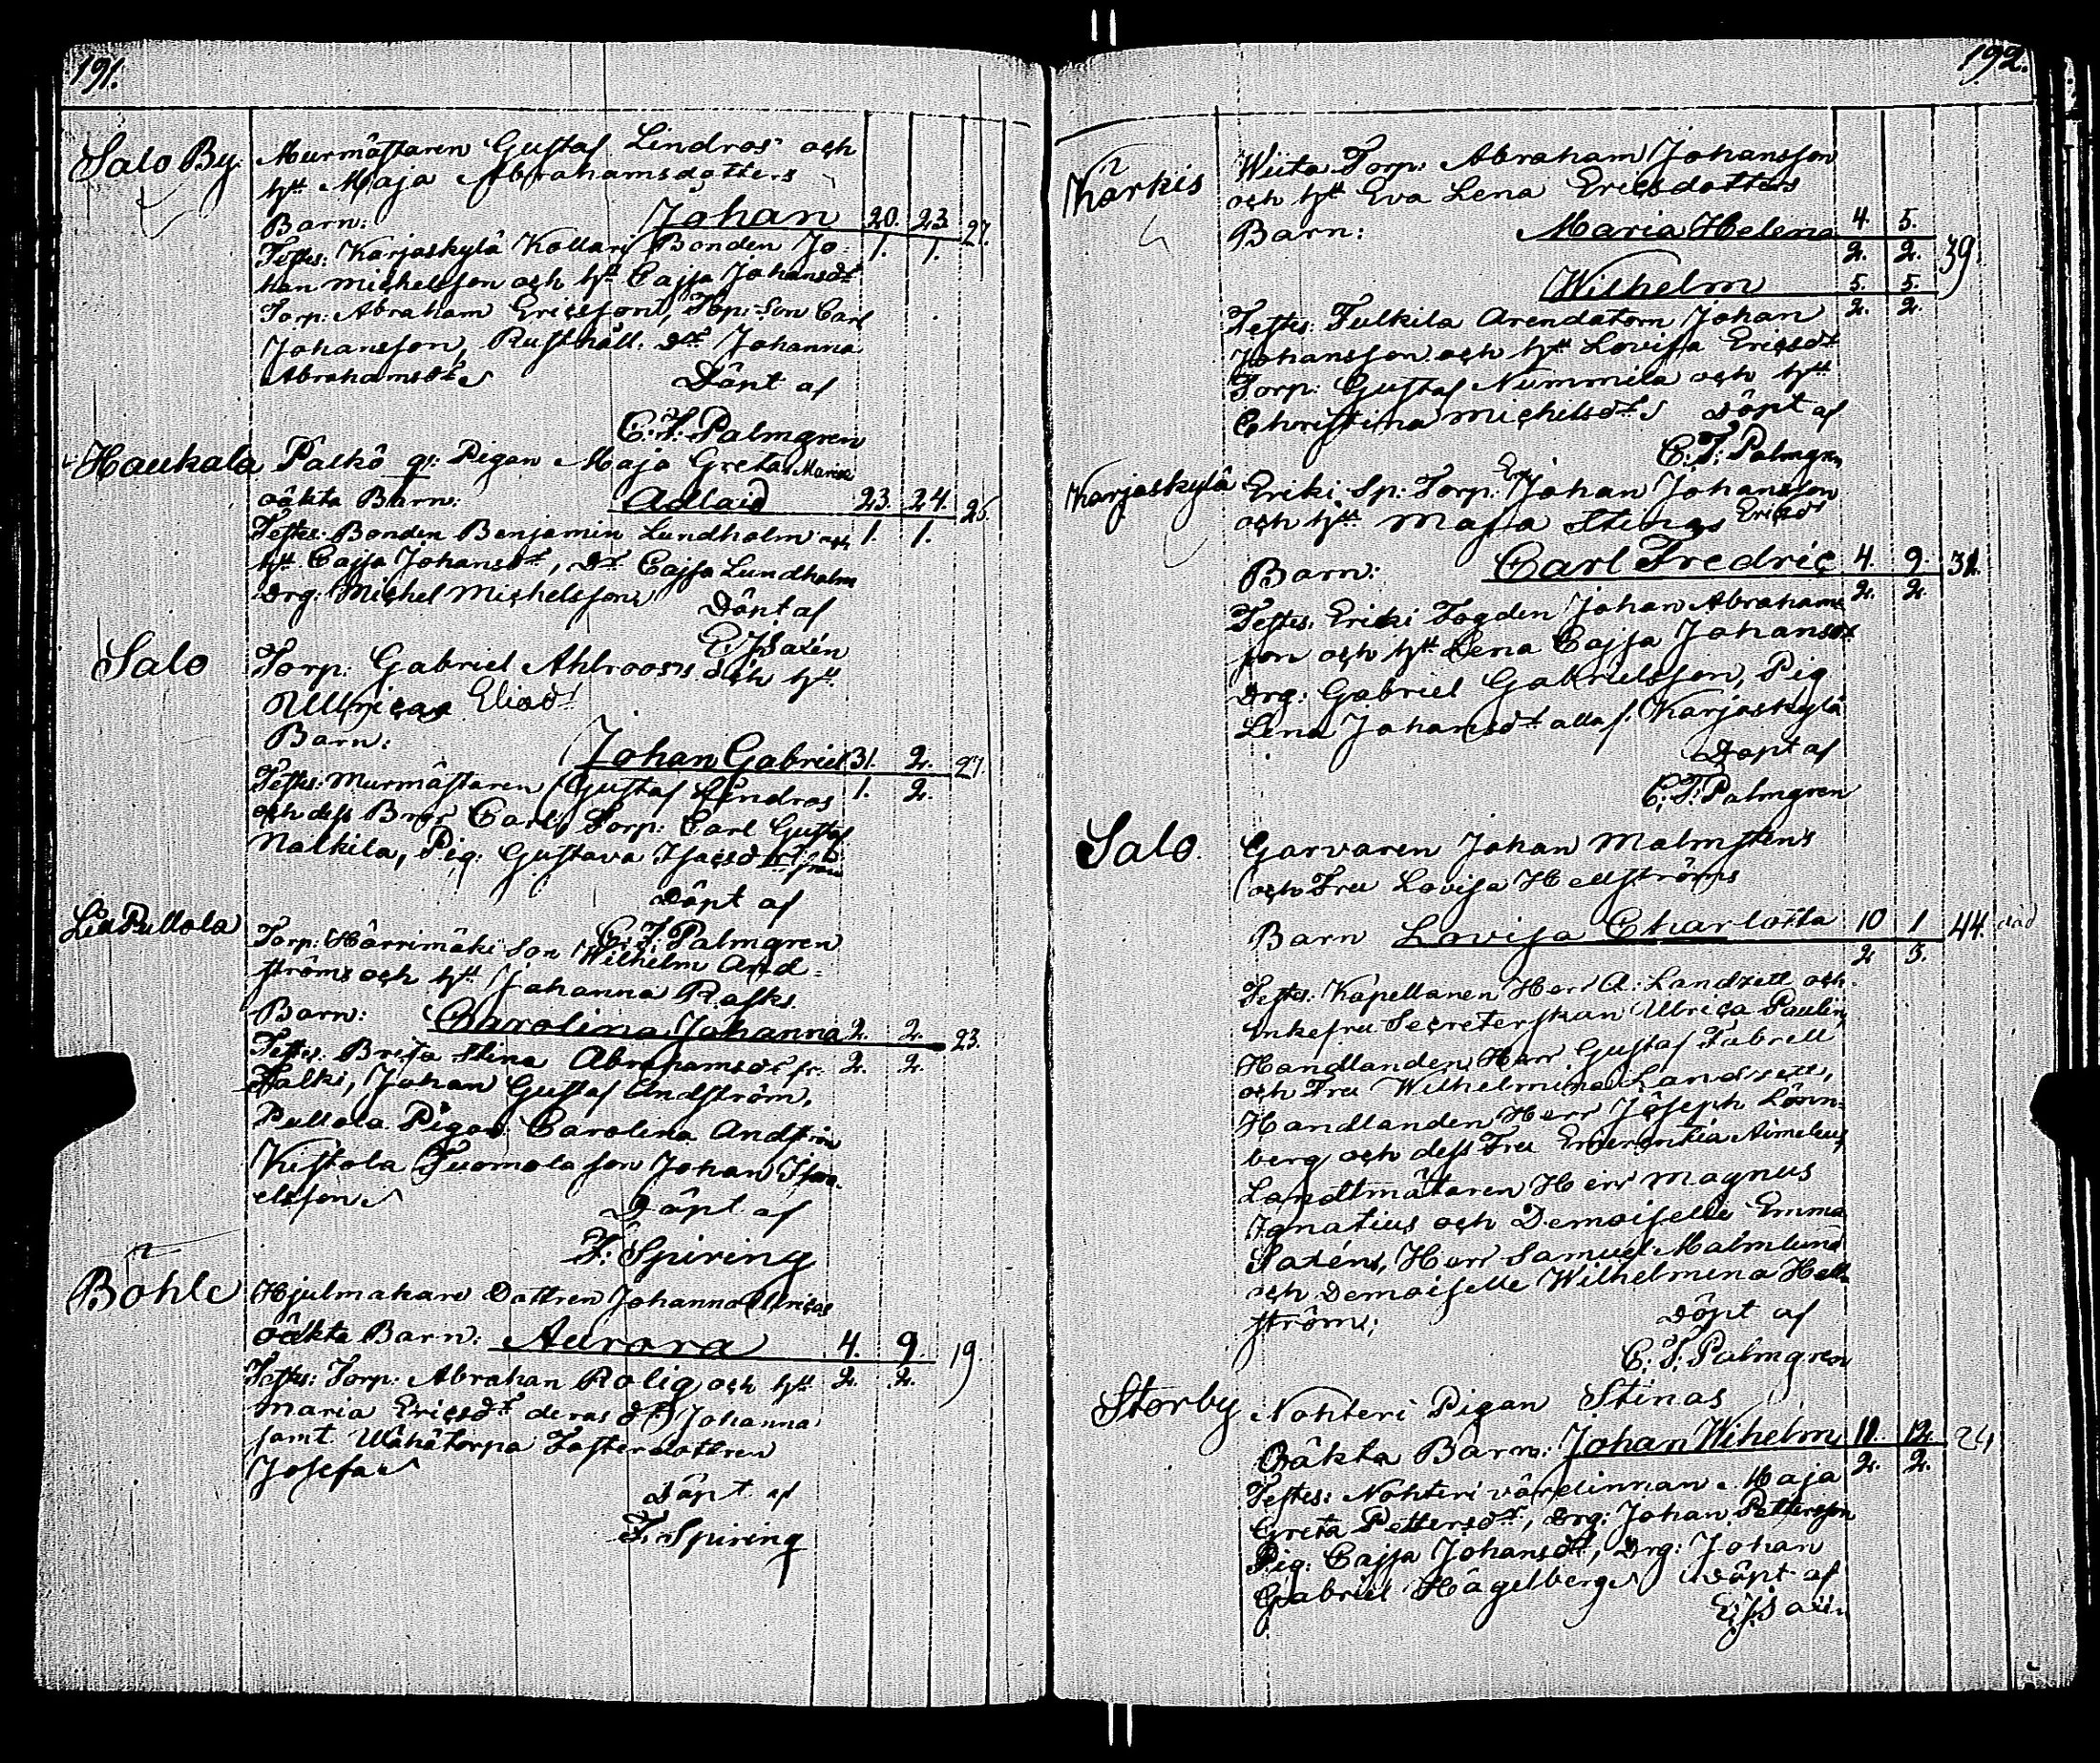 191.
Salo By. Murmästaren Gustaf Lindros och
hu Maja Abrahamsdotters
Barn: Johan 20. 23. 27.
Testes: Karjaskylä Kollari Bonden Jo= 1. 1.
han Michelsson och hu Cajsa Johansdr
Torp: Abraham Ericsson, Torp: Son Carl
Johansson, Rusthåll. Dr Johanna
Abrahamsdr
Döpt af
C. F. Palmgren
Haukala Palkö qv: Pigan Maja Greta Marias
oäkta Barn: Adlaid 23. 24. 26.
Testes: Bonden Benjamin Lundholm och 1. 1.
hu Cajsa Johansdr, Dr Cajsa Lundholm
Drg: Michel Michelsson
Döpt af
Saxén
Salo Torp: Gabriel Ahlroos's och hu
Ullricas Eliasdr
Barn: Johan Gabriel 31. 2. 27.
Testes: Murmästaren Gustaf Lindros 1. 2.
och dess Carl, Torp: Carl Gustaf
Nalkila, Pig: Gustava Isacsdr
Döpt af
C. F. Palmgren
Pullola Torp: Härrimäki Son Wilhelm And=
ströms och hu Johanna Rasks
Barn: Carolina Johanna 2. 2. 23.
Testes: Brita Stina Abrahamsdr fr. 2. 2.
Falki, Johan Gustaf Andström,
Pullola Pigan Carolina Andström
Kistola Tuomola son Johan Isra-
elsson
Döpt af
F. Spiring
Böhle Hjulmakare Dottren Johanna Ulricas
Oäkta Barn: Aurora 4. 9. 19.
Testes: Torp: Abraham Rolig och hu 2. 2.
Maria Ericsdr deras dr Johanna
samt Wähätorpa Fosterdottren
Josefa
Döpt af
F. Spiring
192.
Kärkis Wiita Torp: Abraham Johansson
och hu Eva Lena Ericsdotters
Barn: Maria Helena 4. 5.
2. 2. 39.
Wilhelm 5. 5.
Testes: Fulkila Arendatorn Johan 2. 2.
Johansson och hu Lovisa Ericsdr
Torp: Gustaf Nummila och hu
Christina Michelsdr Döpt af
C. F. Palmgren
Karjaskylä Eriki Sp: Torp: Johan Johansson
och hu Maja Stinas Ericsdr
Barn: Carl Fredric 4. 9. 31.
Testes: Eriki Fogden Johan Abrahams 2. 2.
son och hu Lena Cajsa Johansdr
Drg: Gabriel Gabrielsson, Pig
Lena Johansdr alla f. Karjaskylä
Döpt af
C. F. Palmgren
Salo. Garvaren Johan Malmstens
och Fru Lovisa Hellströms
Barn Lovisa Charlotta 10 1 44.
2 3.
Testes: Kapellanen Herr A: Landzett och
enkefru Secreterskan Ulrica Paulin,
Handlanden Herr Gustaf Fabrell
och Fru Wilhelmina Landzett,
Handlanden Herr Joseph Lönn-
berg och dess Fru Emerentia Aimelius,
Landtmätaren Herr Magnus
Ignatius och Demoiselle Emma
Saxén, Herr Samuel Malmlund
och Demoiselle Wilhelmina Hell-
ström;
Döpt af
C. F. Palmgren
Storby Nohteri Pigan Stinas
Oäkta Barn: Johan Wilhelm 11. 12. 24
Testes: Nohteri värdinnan Maja 2. 2.
Greta Pettersdr, Drg: Johan Pettersson
Pig: Cajsa Johansdr, Drg: Johan
Gabriel Hägelberg Döpt af
Saxén